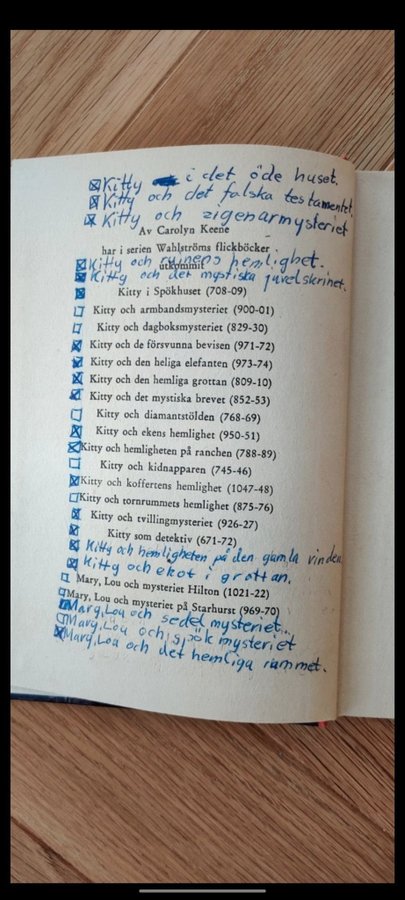 Kitty i det öde huset.
Kitty och det falska testamentet.
Kitty och zigenarmysteriet
Av Carolyn Keene
har i serien Wahlströms flickböcker
utkommit
Kitty och ruinens hemlighet.
Kitty och det mystiska juvelskrinet.
Kitty i Spökhuset (708-09)
Kitty och armbandsmysteriet (900-01)
Kitty och dagboksmysteriet (829-30)
Kitty och de försvunna bevisen (971-72)
Kitty och den heliga elefanten (973-74)
Kitty och den hemliga grottan (809-10)
Kitty och det mystiska brevet (852-53)
Kitty och diamantstölden (768-69)
Kitty och ekens hemlighet (950-51)
Kitty och hemligheten på ranchen (788-89)
Kitty och kidnapparen (745-46)
Kitty och koffertens hemlighet (1047-48)
Kitty och tornrummets hemlighet (875-76)
Kitty och tvillingmysteriet (926-27)
Kitty som detektiv (671-72)
Kitty och hemligheten på den gamla vinden
Kitty och ekot i grottan.
Mary, Lou och mysteriet Hilton (1021-22)
Mary, Lou och mysteriet på Starhurst (969-70)
Mary, Lou och sedel mysteriet.
Mary, Lou och spök mysteriet
Mary, Lou och det hemliga rummet.